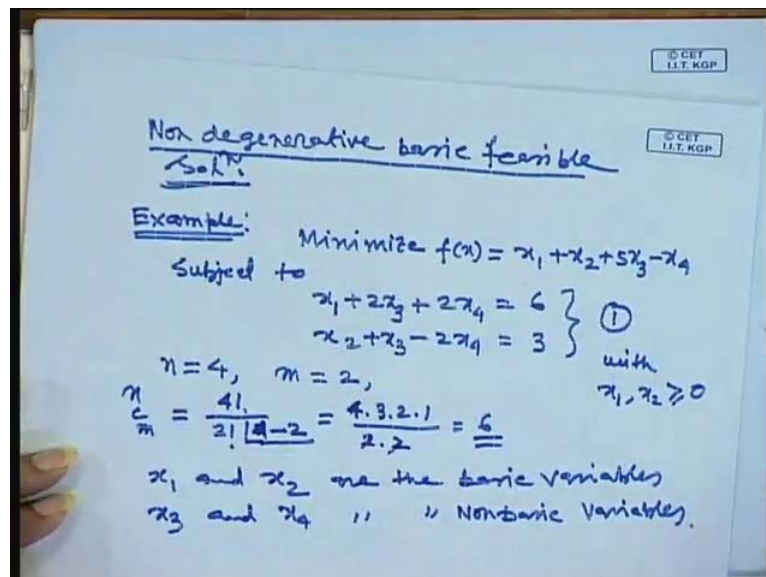 © CET
I.I.T. KGP
© CET
I.I.T. KGP
Non degenerative basic feasible
Solⁿ.
Example:
Minimize f(x) = x₁ + x₂ + 5x₃ - x₄
Subject to
x₁ + 2x₃ + 2x₄ = 6
x₂ + x₃ - 2x₄ = 3
} ①
with
x₁, x₂ ≥ 0
n = 4, m = 2,
ⁿCₘ = 4!/(2! |4-2) = 4.3.2.1/2.2 = 6
x₁ and x₂ are the basic variables
x₃ and x₄ " " Nonbasic Variables.